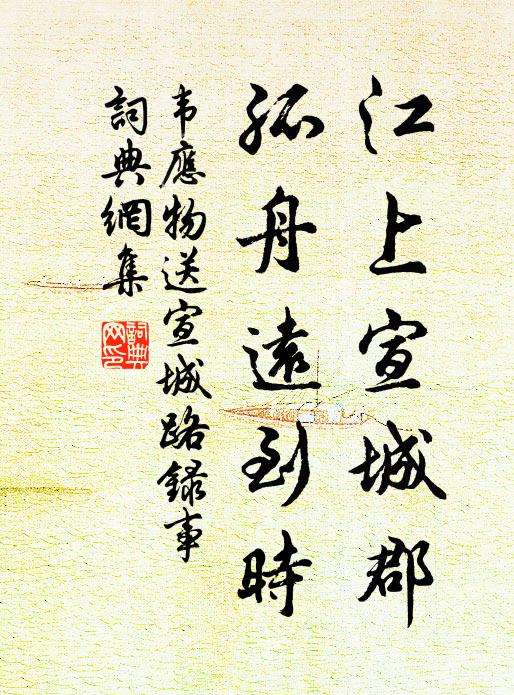 江上宣城郡
孤舟遠到時
韦應物送宣城路録事
詞典網集
詞典
网印